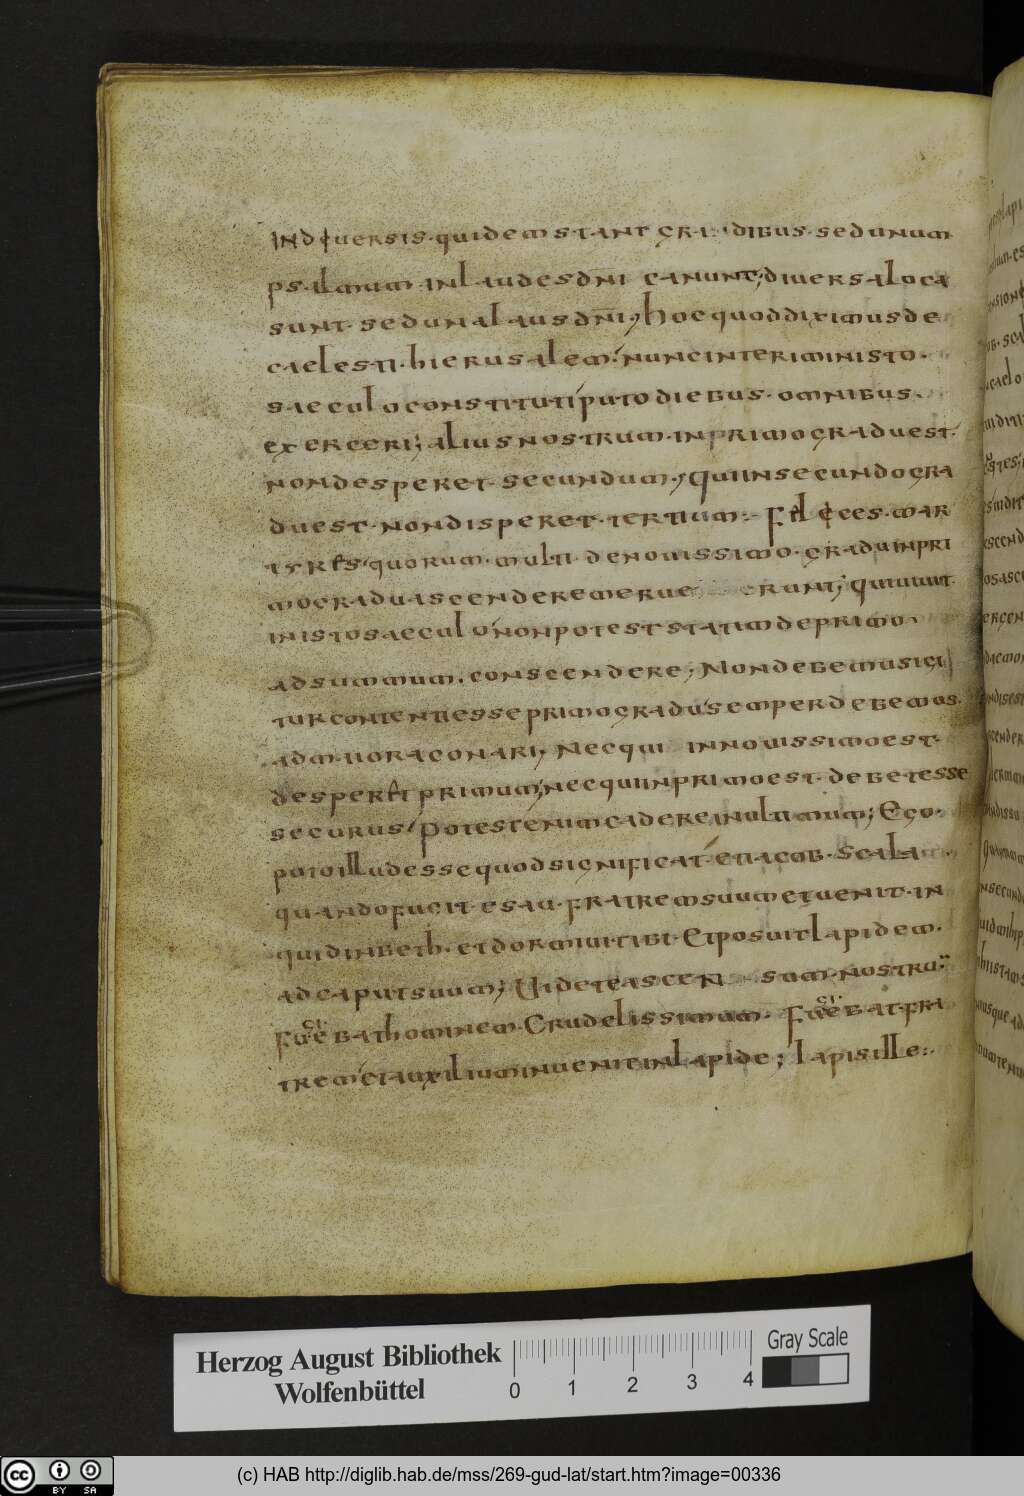 IND&uersis·quidem stant gra dibus·sed unum
psalmum·in laudes dni canunt; diuersa loca
sunt·sed una laus dni; hoc quod diximus de
caelesti·hierusalem·nunc interim in isto·
saeculo constituti puto diebus·omnibus·
exerceri; alius nostrum·in primo gradu est·
non desperet·secundum·; qui in secundo gra
du est·non disperet·tertium· felices·mar
tyres quorum·multi·de nouissimo·gradu in pri
mo gradu ascendere merue erunt; qui uiuit
in isto saeculo non potest statim de primo·
ad summum·conscendere; Non debem us igi
tur contenti esse primo gradu semper debemus·
ad m uora conari; Nec qui in nouissimo est·
desperet primum; nec qui in primo est·debet esse
securus potest enim cadere in ultimum; Ego·
puto illud esse quod significat et iacob·scala
quando fugit·esau·fratrem suum et uenit·in
quid in beth·et dormiuit ibi·Et posuit lapidem·
ad caput suum; Videte ascen sum·nostru
bat hominem·Crudelissimum· bat·fra
trem et auxilium inuenit in lapide; lapis ille·
Herzog August Bibliothek
Wolfenbüttel
0 1 2 3 4
Gray Scale
cc BY SA
(c) HAB http://diglib.hab.de/mss/269-gud-lat/start.htm?image=00336